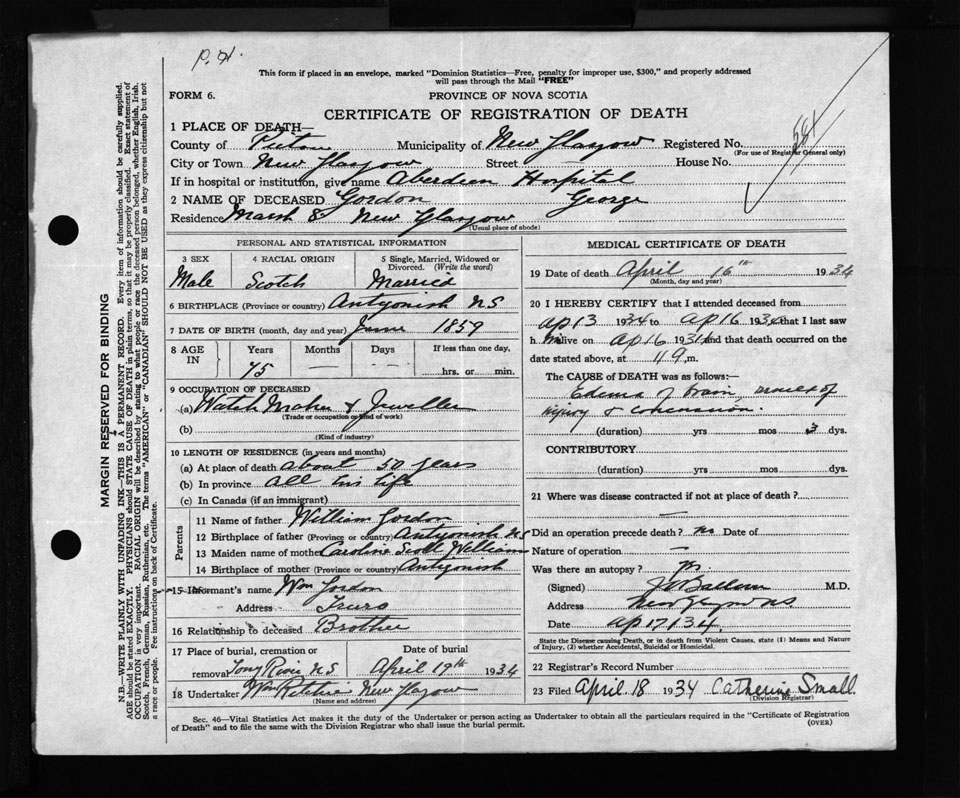 P. H.
This form if placed in an envelope, marked "Dominion Statistics—Free, penalty for improper use, $300," and properly addressed
will pass through the Mail "FREE"
FORM 6.
PROVINCE OF NOVA SCOTIA
CERTIFICATE OF REGISTRATION OF DEATH
1 PLACE OF DEATH—
County of Pictou Municipality of New Glasgow Registered No. 581
(For use of Registrar General only)
City or Town New Glasgow Street House No.
If in hospital or institution, give name Aberdeen Hospital
2 NAME OF DECEASED Gordon George
Residence Marsh St New Glasgow
(Usual place of abode)
PERSONAL AND STATISTICAL INFORMATION
3 SEX 4 RACIAL ORIGIN 5 Single, Married, Widowed or Divorced. (Write the word)
Male Scotch Married
6 BIRTHPLACE (Province or country) Antigonish NS
7 DATE OF BIRTH (month, day and year) June 1859
8 AGE IN Years Months Days If less than one day,
75 — — hrs. or min.
9 OCCUPATION OF DECEASED
(a) Watch Maker & Jeweller
(Trade or occupation or kind of work)
(b)
(Kind of industry)
10 LENGTH OF RESIDENCE (in years and months)
(a) At place of death about 50 years
(b) In province all his life
(c) In Canada (if an immigrant)
Parents
11 Name of father William Gordon
12 Birthplace of father (Province or country) Antigonish NS
13 Maiden name of mother Caroline Scott William
14 Birthplace of mother (Province or country) Antigonish
15 Informant's name Wm Gordon
Address Truro
16 Relationship to deceased Brother
17 Place of burial, cremation or removal Date of burial
Tony River NS April 19th 1934
18 Undertaker Wm Ritchie New Glasgow
(Name and address)
MEDICAL CERTIFICATE OF DEATH
19 Date of death April 16th 1934
(Month, day and year)
20 I HEREBY CERTIFY that I attended deceased from
ap 13 1934 to ap 16 1934 that I last saw
him alive on ap 16 1934 and that death occurred on the
date stated above, at 11 9 m.
The CAUSE OF DEATH was as follows:—
Edema of brain, result of
injury & concussion.
(duration) yrs mos 3 dys.
CONTRIBUTORY
(duration) yrs mos dys.
21 Where was disease contracted if not at place of death?
—
Did an operation precede death? no Date of
Nature of operation —
Was there an autopsy? no
(Signed) M.D.
Address New Glasgow NS
Date ap 17/34
State the Disease causing Death, or in death from Violent Causes, state (1) Means and Nature
of Injury, (2) whether Accidental, Suicidal or Homicidal.
22 Registrar's Record Number
23 Filed April 18 1934 Catherine Small.
(Division Registrar)
Sec. 46—Vital Statistics Act makes it the duty of the Undertaker or person acting as Undertaker to obtain all the particulars required in the "Certificate of Registration
of Death" and to file the same with the Division Registrar who shall issue the burial permit.
(OVER)
MARGIN RESERVED FOR BINDING
N.B.—WRITE PLAINLY WITH UNFADING INK—THIS IS A PERMANENT RECORD. Every item of information should be carefully supplied.
AGE should be stated EXACTLY. PHYSICIANS should STATE CAUSE OF DEATH in plain terms, so that it may be properly classified. Exact statement of
OCCUPATION is very important. RACIAL ORIGIN will be described by stating to what people or race the deceased person belonged, whether English, Irish,
Scotch, French, German, Russian, Ruthenian, etc. The terms "AMERICAN" or "CANADIAN" SHOULD NOT BE USED as they express citizenship but not
a race or people. See instructions on back of Certificate.